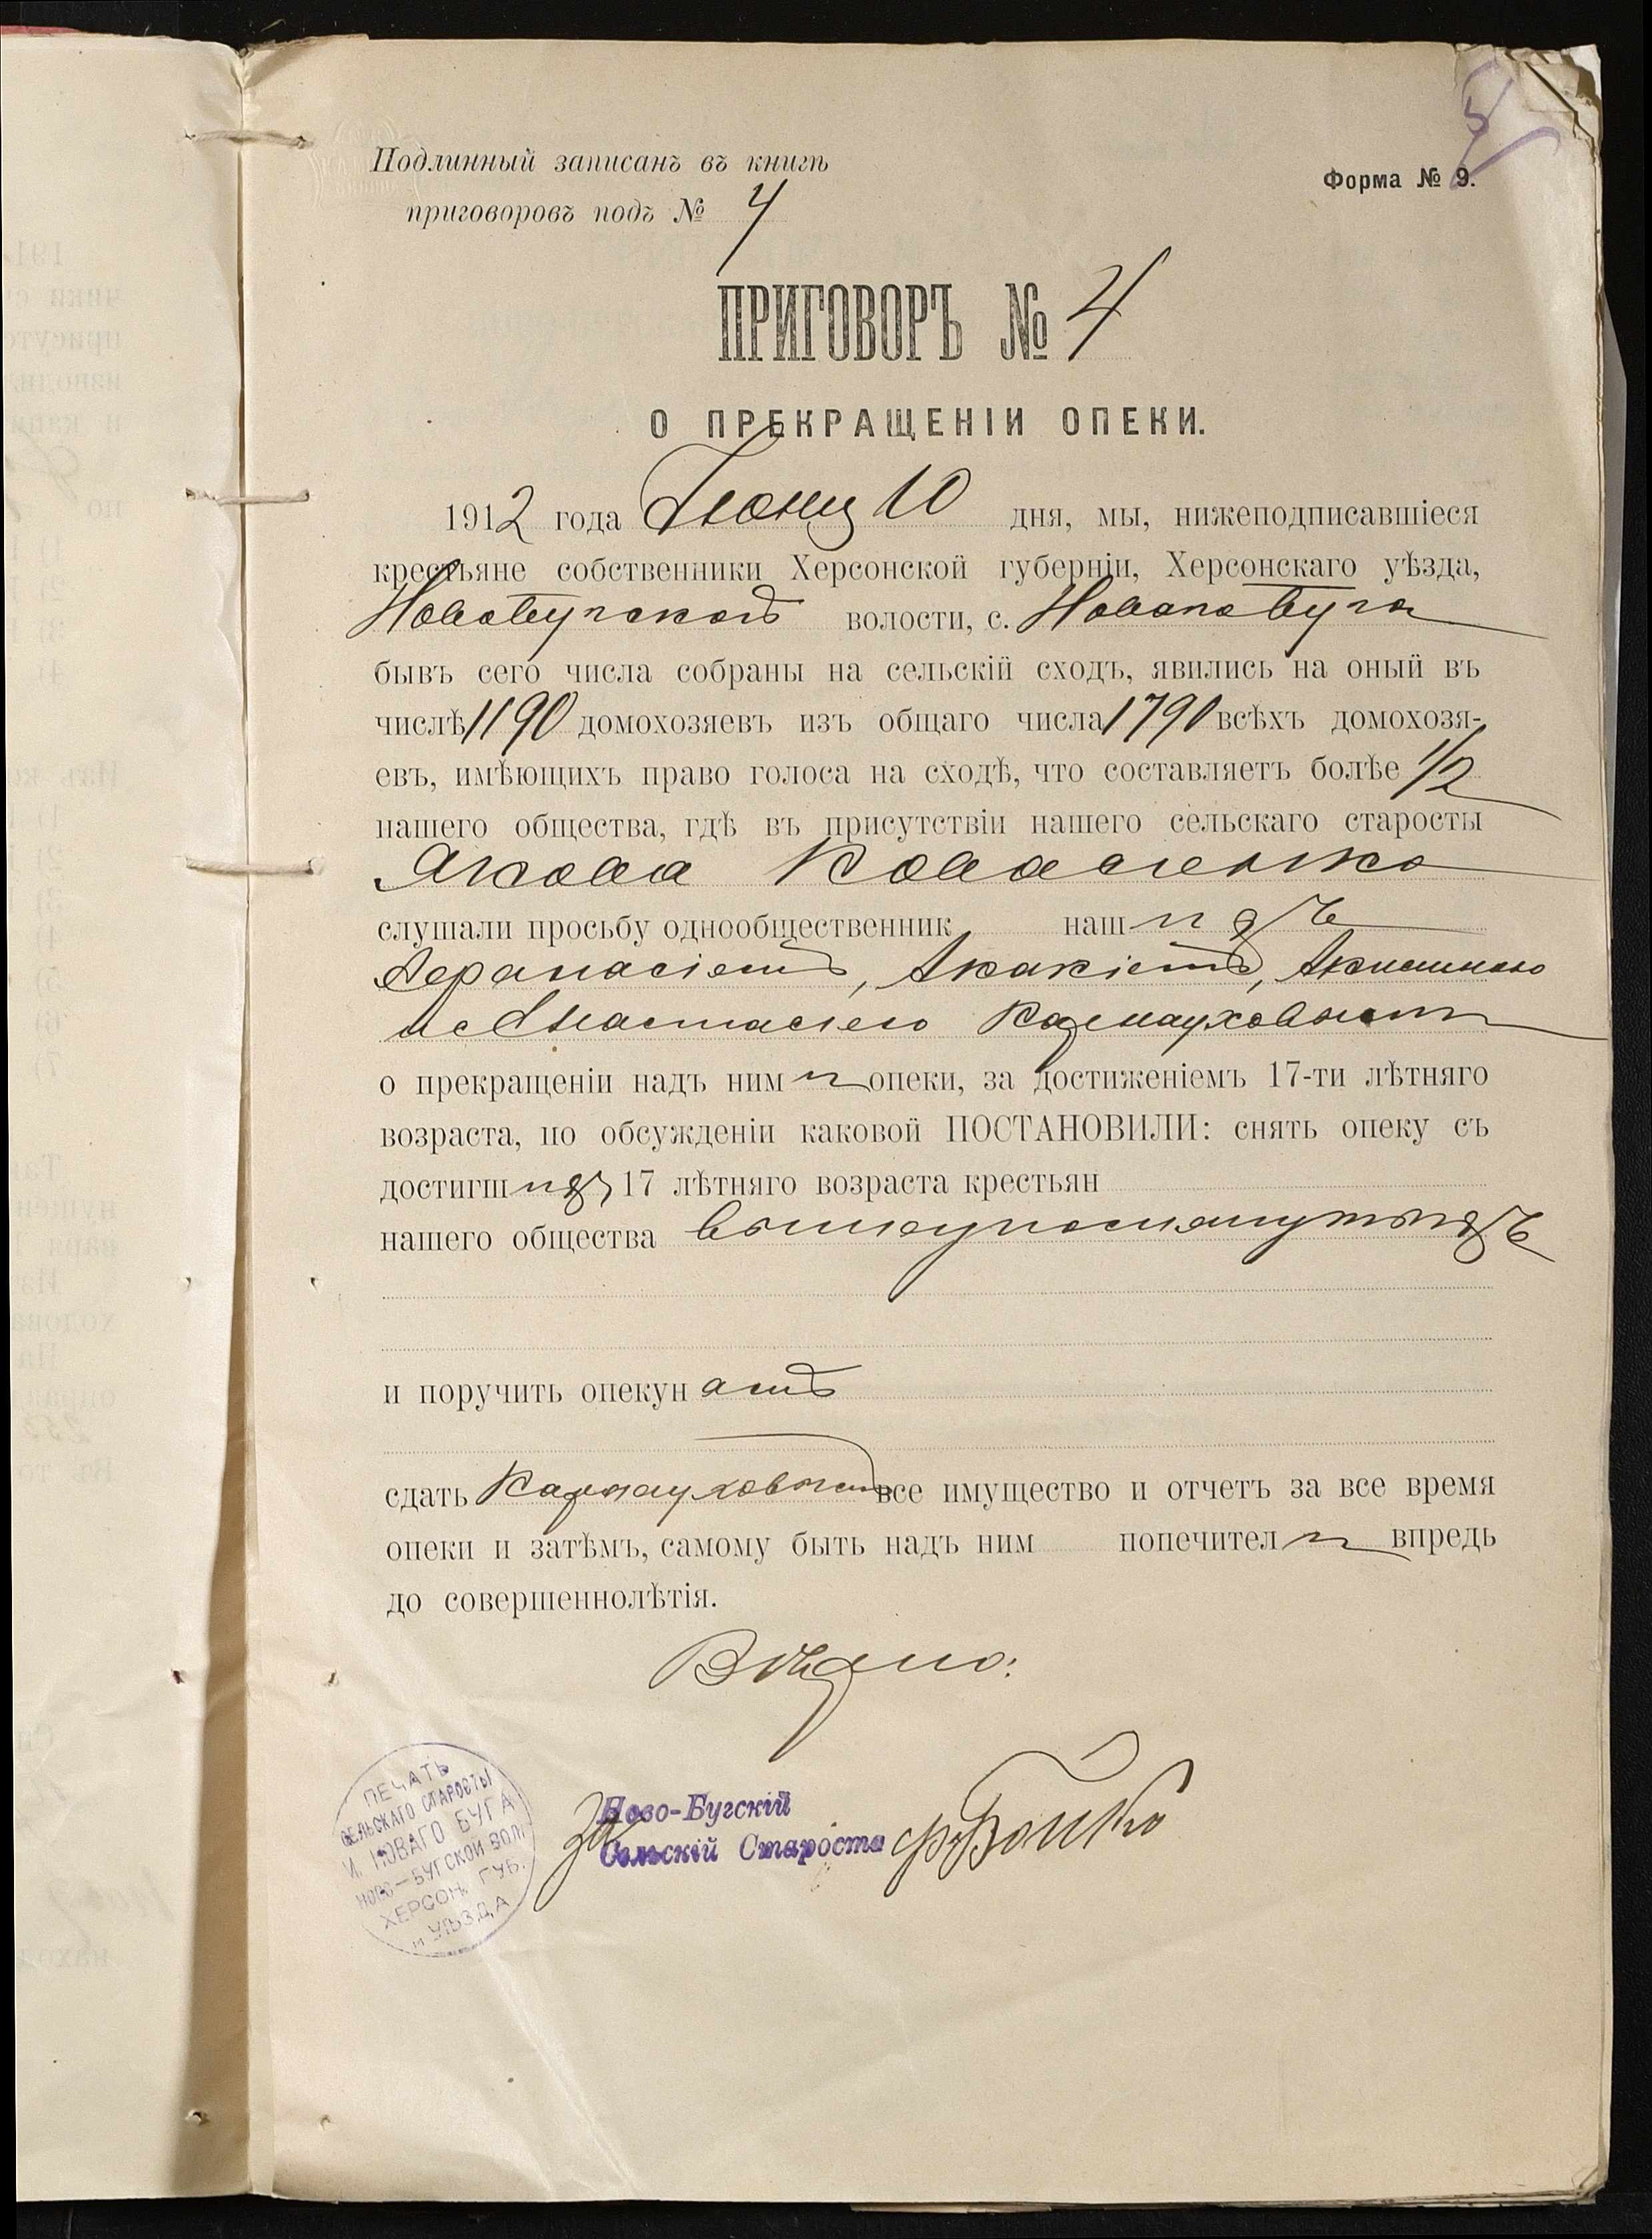 Подлинный записанъ въ книгѣ
приговоровъ подъ № 4
Форма № 9.
ПРИГОВОРЪ № 4
О ПРЕКРАЩЕНІИ ОПЕКИ.
1912 года Іюня 10 дня, мы, нижеподписавшіеся
крестьяне собственники Херсонской губерніи, Херсонскаго уѣзда,
Новобугской волости, с. Новаго Буга
бывъ сего числа собраны на сельскій сходъ, явились на оный въ
числѣ 1190 домохозяевъ изъ общаго числа 1790 всѣхъ домохозя-
евъ, имѣющихъ право голоса на сходѣ, что составляетъ болѣе 1/2
нашего общества, гдѣ въ присутствіи нашего сельскаго старосты
Якова Коваленко
слушали просьбу однообщественник нашихъ
Афанасіемъ, Акакіемъ, Акилиною
и с Анастасіею Карнауховыми
о прекращеніи надъ ними опеки, за достиженіемъ 17-ти лѣтняго
возраста, по обсужденіи каковой ПОСТАНОВИЛИ: снять опеку съ
достигшихъ 17 лѣтняго возраста крестьян
нашего общества вышеупомянутыхъ
и поручить опекунамъ
сдать Карнауховымъ все имущество и отчетъ за все время
опеки и затѣмъ, самому быть надъ ним попечители впредь
до совершеннолѣтія.
Вѣрно:
За Ново-Бугскій
Сельскій Староста Бойко
ПЕЧАТЬ
СЕЛЬСКАГО СТАРОСТЫ
И. НОВАГО БУГА
НОВО-БУГСКОЙ ВОЛ.
ХЕРСОН. ГУБ.
И УѢЗДА